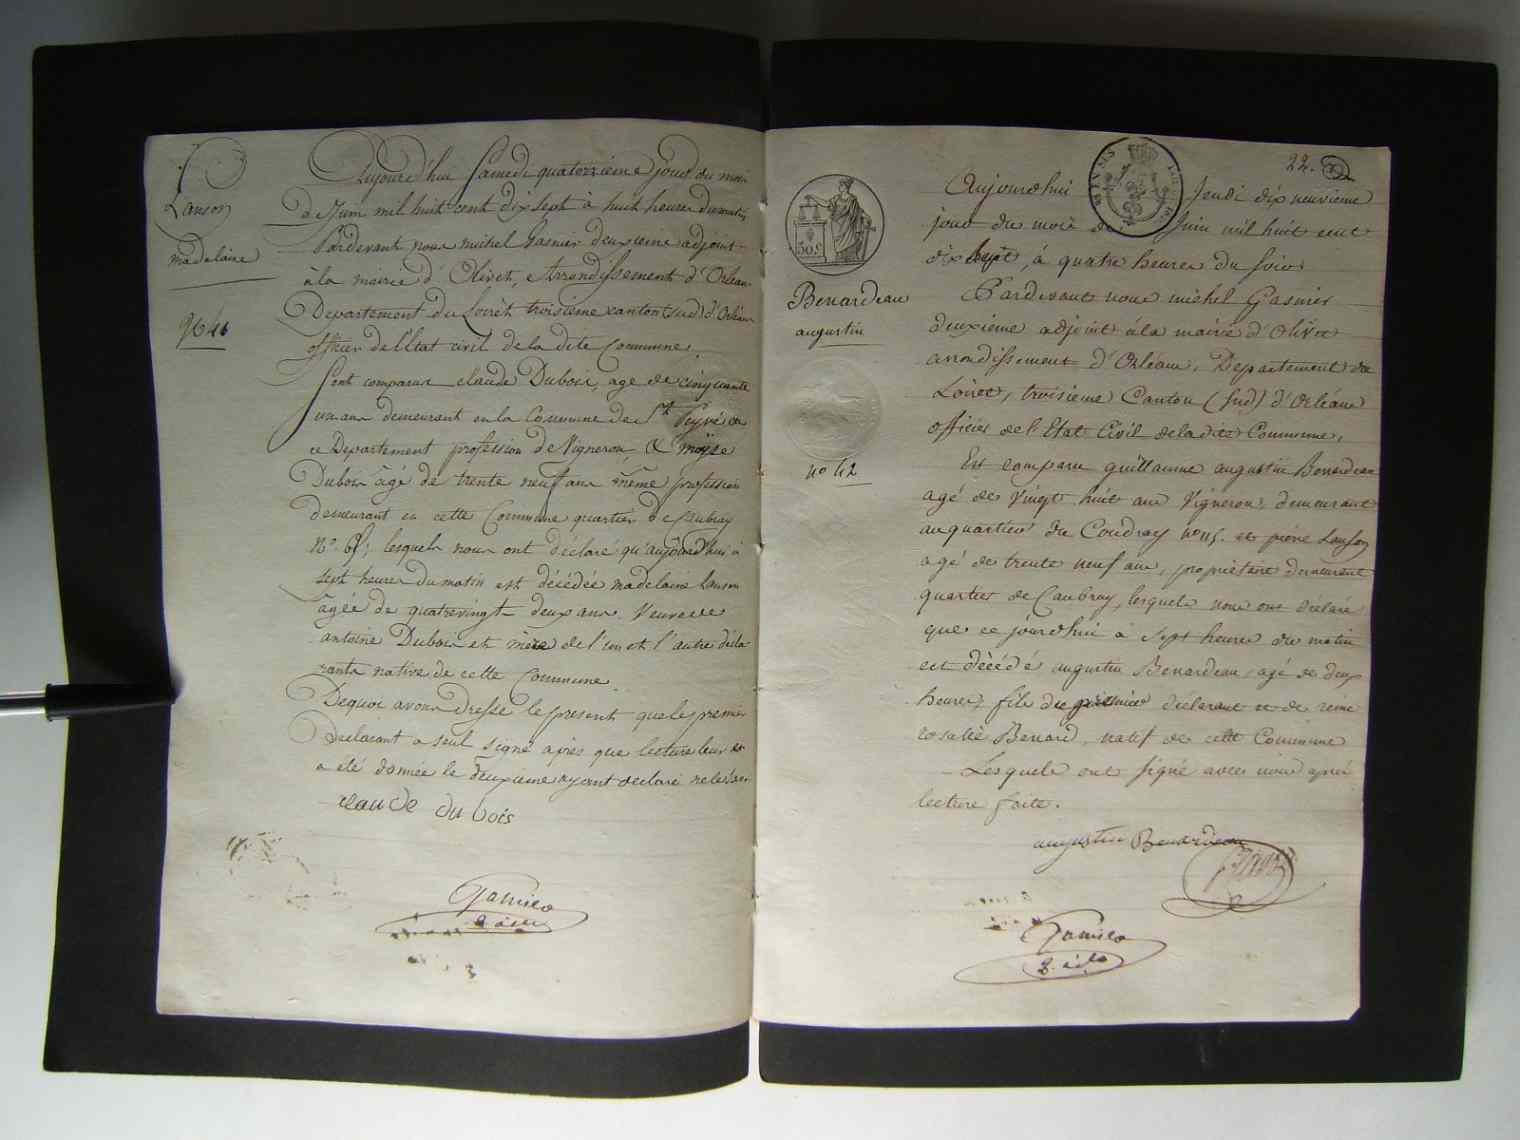 Lanson
madelaine
N° 41
Aujourd'hui Samedi quatorzieme jour du mois
de Juin mil huit cent dix sept à huit heures du matin
Pardevant nous michel Gasnier deuxieme adjoint
à la mairie d'Olivet, Arrondissement d'Orléans
Departement du Loiret troisieme canton (sud) d'Orléans
officier de l'Etat civil de la dite Commune.
Sont comparus claude Dubois, age de cinquante
un ans demeurant en la Commune de St. Peyré en
ce Departement profession de Vigneron, & moyse
Dubois âgé de trente neuf ans même profession
demeurant en cette Commune quartier de Cubray
N°. lesquels nous ont déclaré qu'aujourd'hui à
sept heures du matin est décédée madelaine Lanson
âgée de quatrevingt deux ans Veuve de
antoine Dubois et mère de l'un et l'autre décla
rants native de cette Commune.
Dequoi avons dressé le present que le premier
Declarant a seul signé après que lecture leur en
a été donnée le deuxieme ayant déclaré ne le savoir
claude du bois
Gasnier
adjoint
22.
Benardeau
augustin
n° 42
50 c
Aujourdhui Jeudi dix neuvieme
jour du mois de Juin mil huit cent
dix sept, à quatre heures du soir
Pardevant nous michel Gasnier
deuxième adjoint à la mairie d'Olivet
arrondissement d'Orléans, Departement du
Loiret, troisième Canton (Sud) d'Orléans
officier de l'Etat Civil de la dite Commune,
Est comparu guillaume augustin Benardeau
agé de vingt huit ans Vigneron, demeurant
au quartier du Coudray n° 115. et pierre Lanson
agé de trente neuf ans, propriétaire demeurant
quartier de Caubray, lesquels nous ont déclaré
que ce jourdhui à sept heures du matin
est décédé augustin Benardeau, agé de deux
heures, fils du premier déclarant et de reine
rosalie Benard, natif de cette Commune
Lesquels ont signé avec nous après
lecture faite.
augustin Benardeau
Gasnier
adjoint